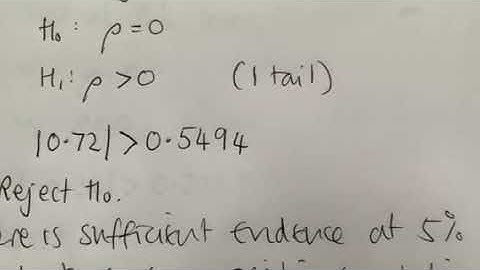 H₀: ρ=0
H₁: ρ>0 (1 tail)
|0.72|>0.5494
Reject H₀.
is sufficient evidence at 5%